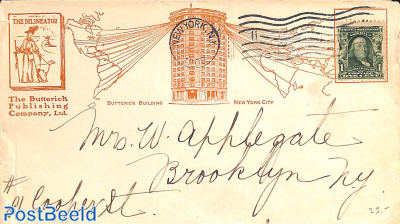 THE DELINEATOR
NEW YORK, N.Y.
The Butterick
Publishing
Company, Ltd.
BUTTERICK BUILDING NEW YORK CITY
Mrs. W. Applegate
Brooklyn N.Y.
# Cooper St.
25.-
PostBeeld